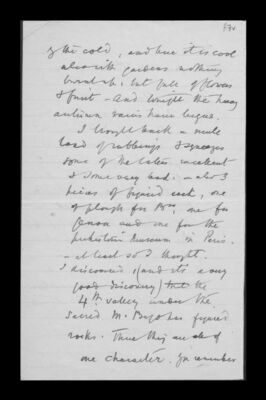 of the cold, and here it is cool
also with gardens nothing
but full of flowers
& fruit - and tonight the heavy
autumn rains have begun.
I brought back a mule
load of rubbings & squeezes
some of the latter excellent
& some very bad. - also 3
pieces of figured rock, one
of plough for one for
Genoa and one for the
prehistoric Museum in Paris.
- at least so I thought.
I discovered (and it's a very
good discovery) that the
4th valley under the
Sacred M. Bego has figured
rocks. These they are all of
one character. You remember